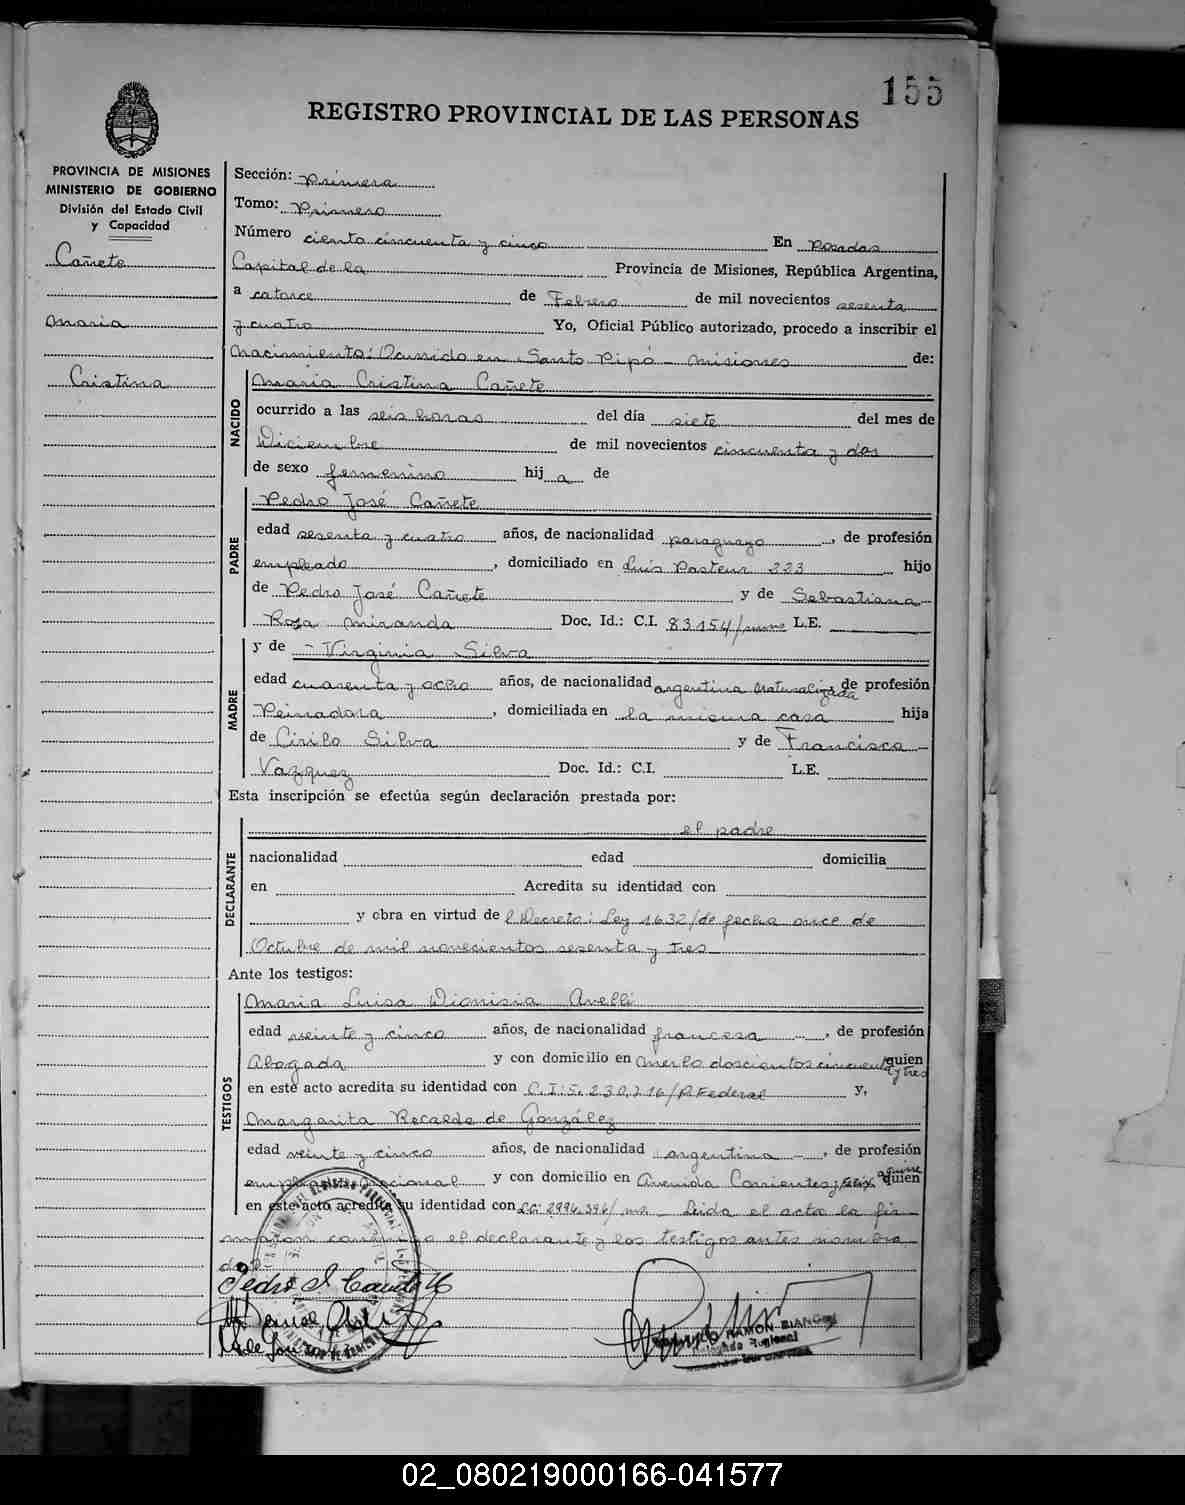 155
REGISTRO PROVINCIAL DE LAS PERSONAS
PROVINCIA DE MISIONES
MINISTERIO DE GOBIERNO
División del Estado Civil
y Capacidad
Cañete
Maria
Cristina
Sección: Primera
Tomo: Primero
Número ciento cincuenta y cinco En Posadas
Capital de la Provincia de Misiones, República Argentina,
a catorce de Febrero de mil novecientos sesenta
y cuatro Yo, Oficial Público autorizado, procedo a inscribir el
Nacimiento: Ocurrido en Santo Pipó - Misiones de:
NACIDO
Maria Cristina Cañete
ocurrido a las seis horas del día siete del mes de
Diciembre de mil novecientos cincuenta y dos
de sexo femenino hij a de
PADRE
Pedro José Cañete
edad sesenta y cuatro años, de nacionalidad paraguayo, de profesión
empleado, domiciliado en Luis Pasteur 223 hijo
de Pedro José Cañete y de Sebastiana
Rosa Miranda Doc. Id.: C.I. 83154/mnes L.E.
MADRE
y de - Virginia Silva
edad cuarenta y ocho años, de nacionalidad argentina naturalizada de profesión
Peinadora, domiciliada en la misma casa hija
de Cirilo Silva y de Francisca
Vazquez Doc. Id.: C.I. L.E.
Esta inscripción se efectúa según declaración prestada por:
DECLARANTE
el padre
nacionalidad edad domicilia
en Acredita su identidad con
y obra en virtud de l Decreto: Ley 1632/de fecha once de
Octubre de mil novecientos sesenta y tres
Ante los testigos:
TESTIGOS
Maria Luisa Dionisia Avelli
edad veinte y cinco años, de nacionalidad francesa, de profesión
Abogada y con domicilio en Merlo doscientos cincuenta y tres quien
en este acto acredita su identidad con C.I: 5.230.216/P. Federal y,
Margarita Recalde de González
edad veinte y cinco años, de nacionalidad argentina -, de profesión
y con domicilio en Avenida Corrientes y Felix Aguirre quien
en este acto acredita su identidad con LC: 2994396/ms - Leida el acta la fir-
maron conmigo el declarante y los testigos antes nombra
dos
RAMON BIANCHI
Regional
02_080219000166-041577